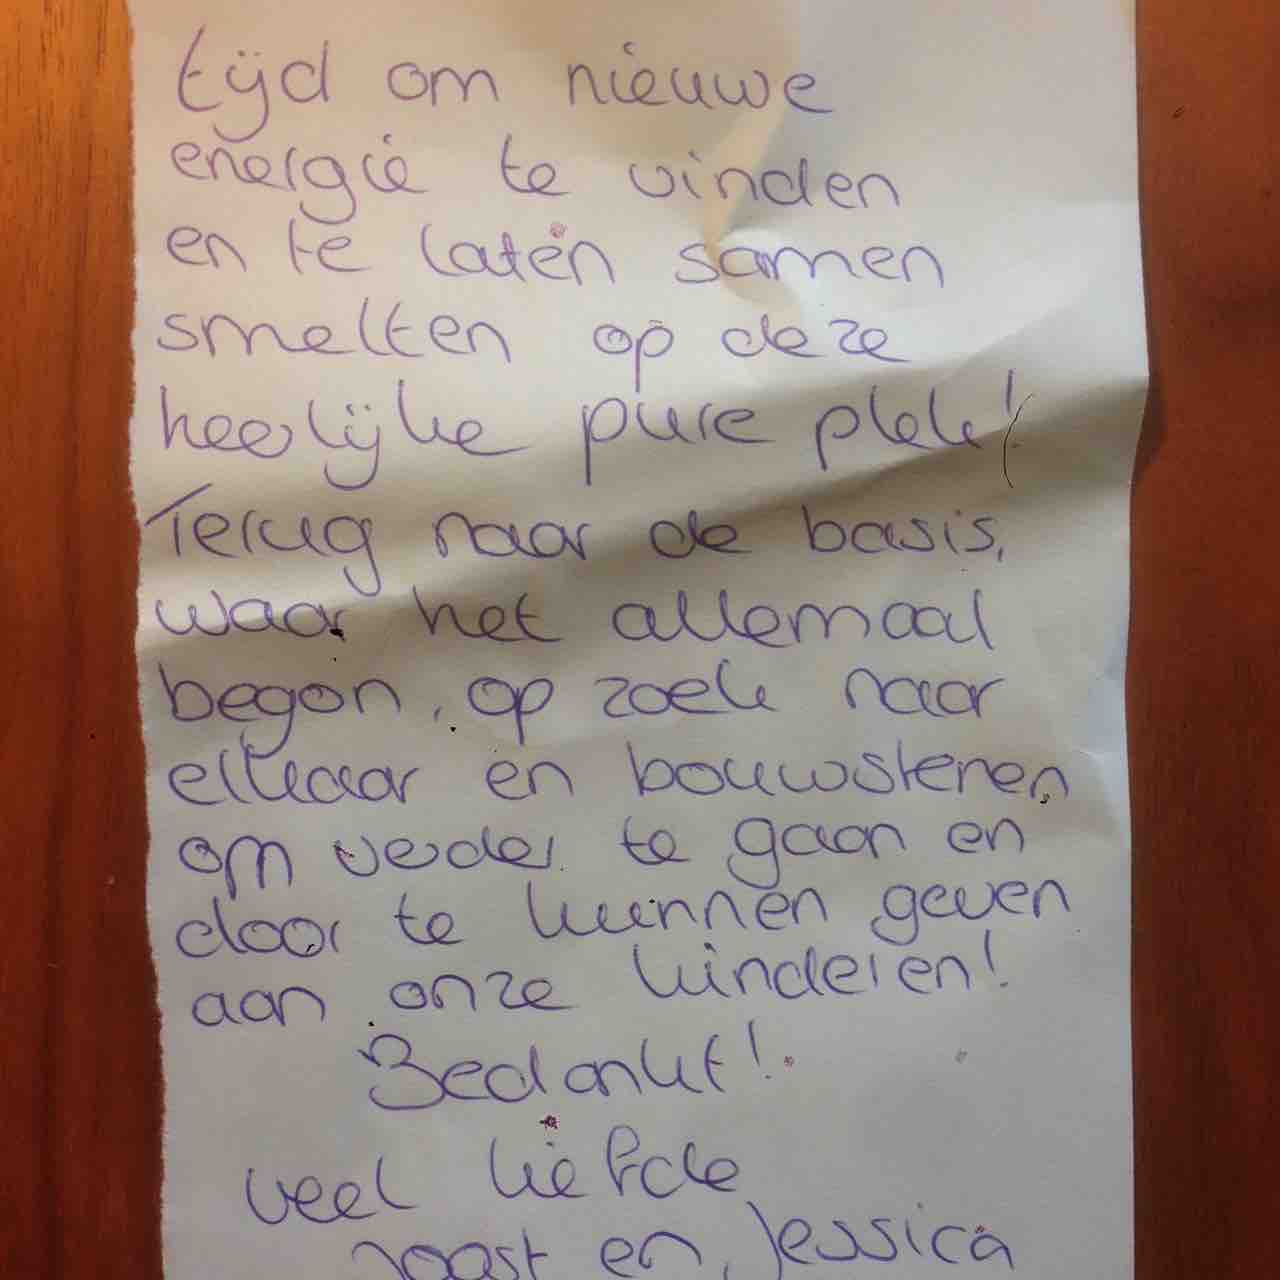 tijd om nieuwe
energie te vinden
en te laten samen
smelten op deze
heerlijke pure plek!
Terug naar de basis,
waar het allemaal
begon, op zoek naar
elkaar en bouwstenen
om verder te gaan en
door te kunnen geven
aan onze kinderen!
Bedankt!
veel liefde
Joost en Jessica